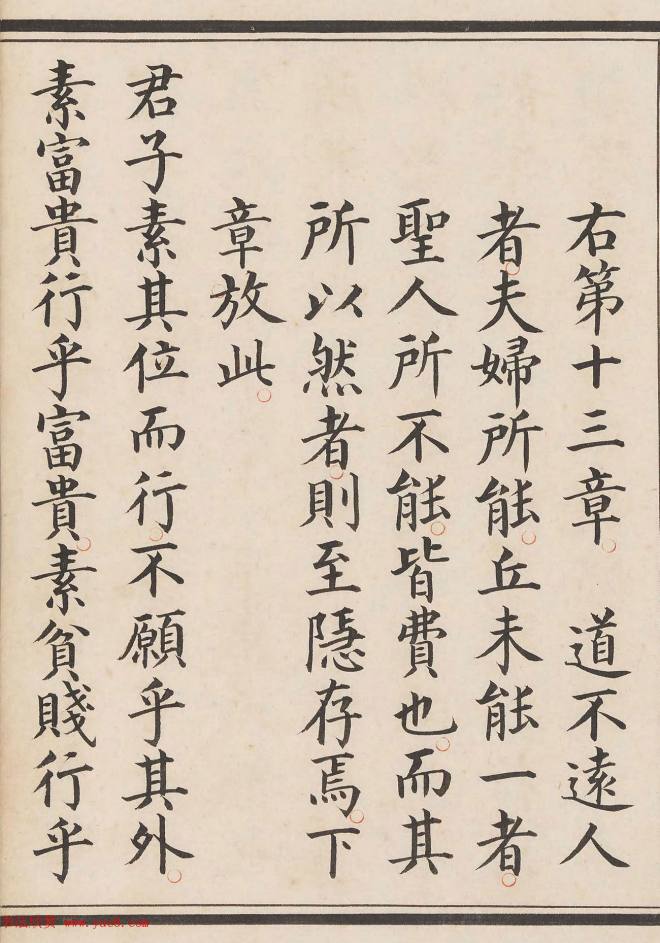 右第十三章。 道不遠人
者。夫婦所能。丘未能一者。
聖人所不能。皆費也。而其
所以然者。則至隱存焉。下
章放此。
君子素其位而行。不願乎其外。
素富貴行乎富貴。素貧賤行乎
www.yac8.com